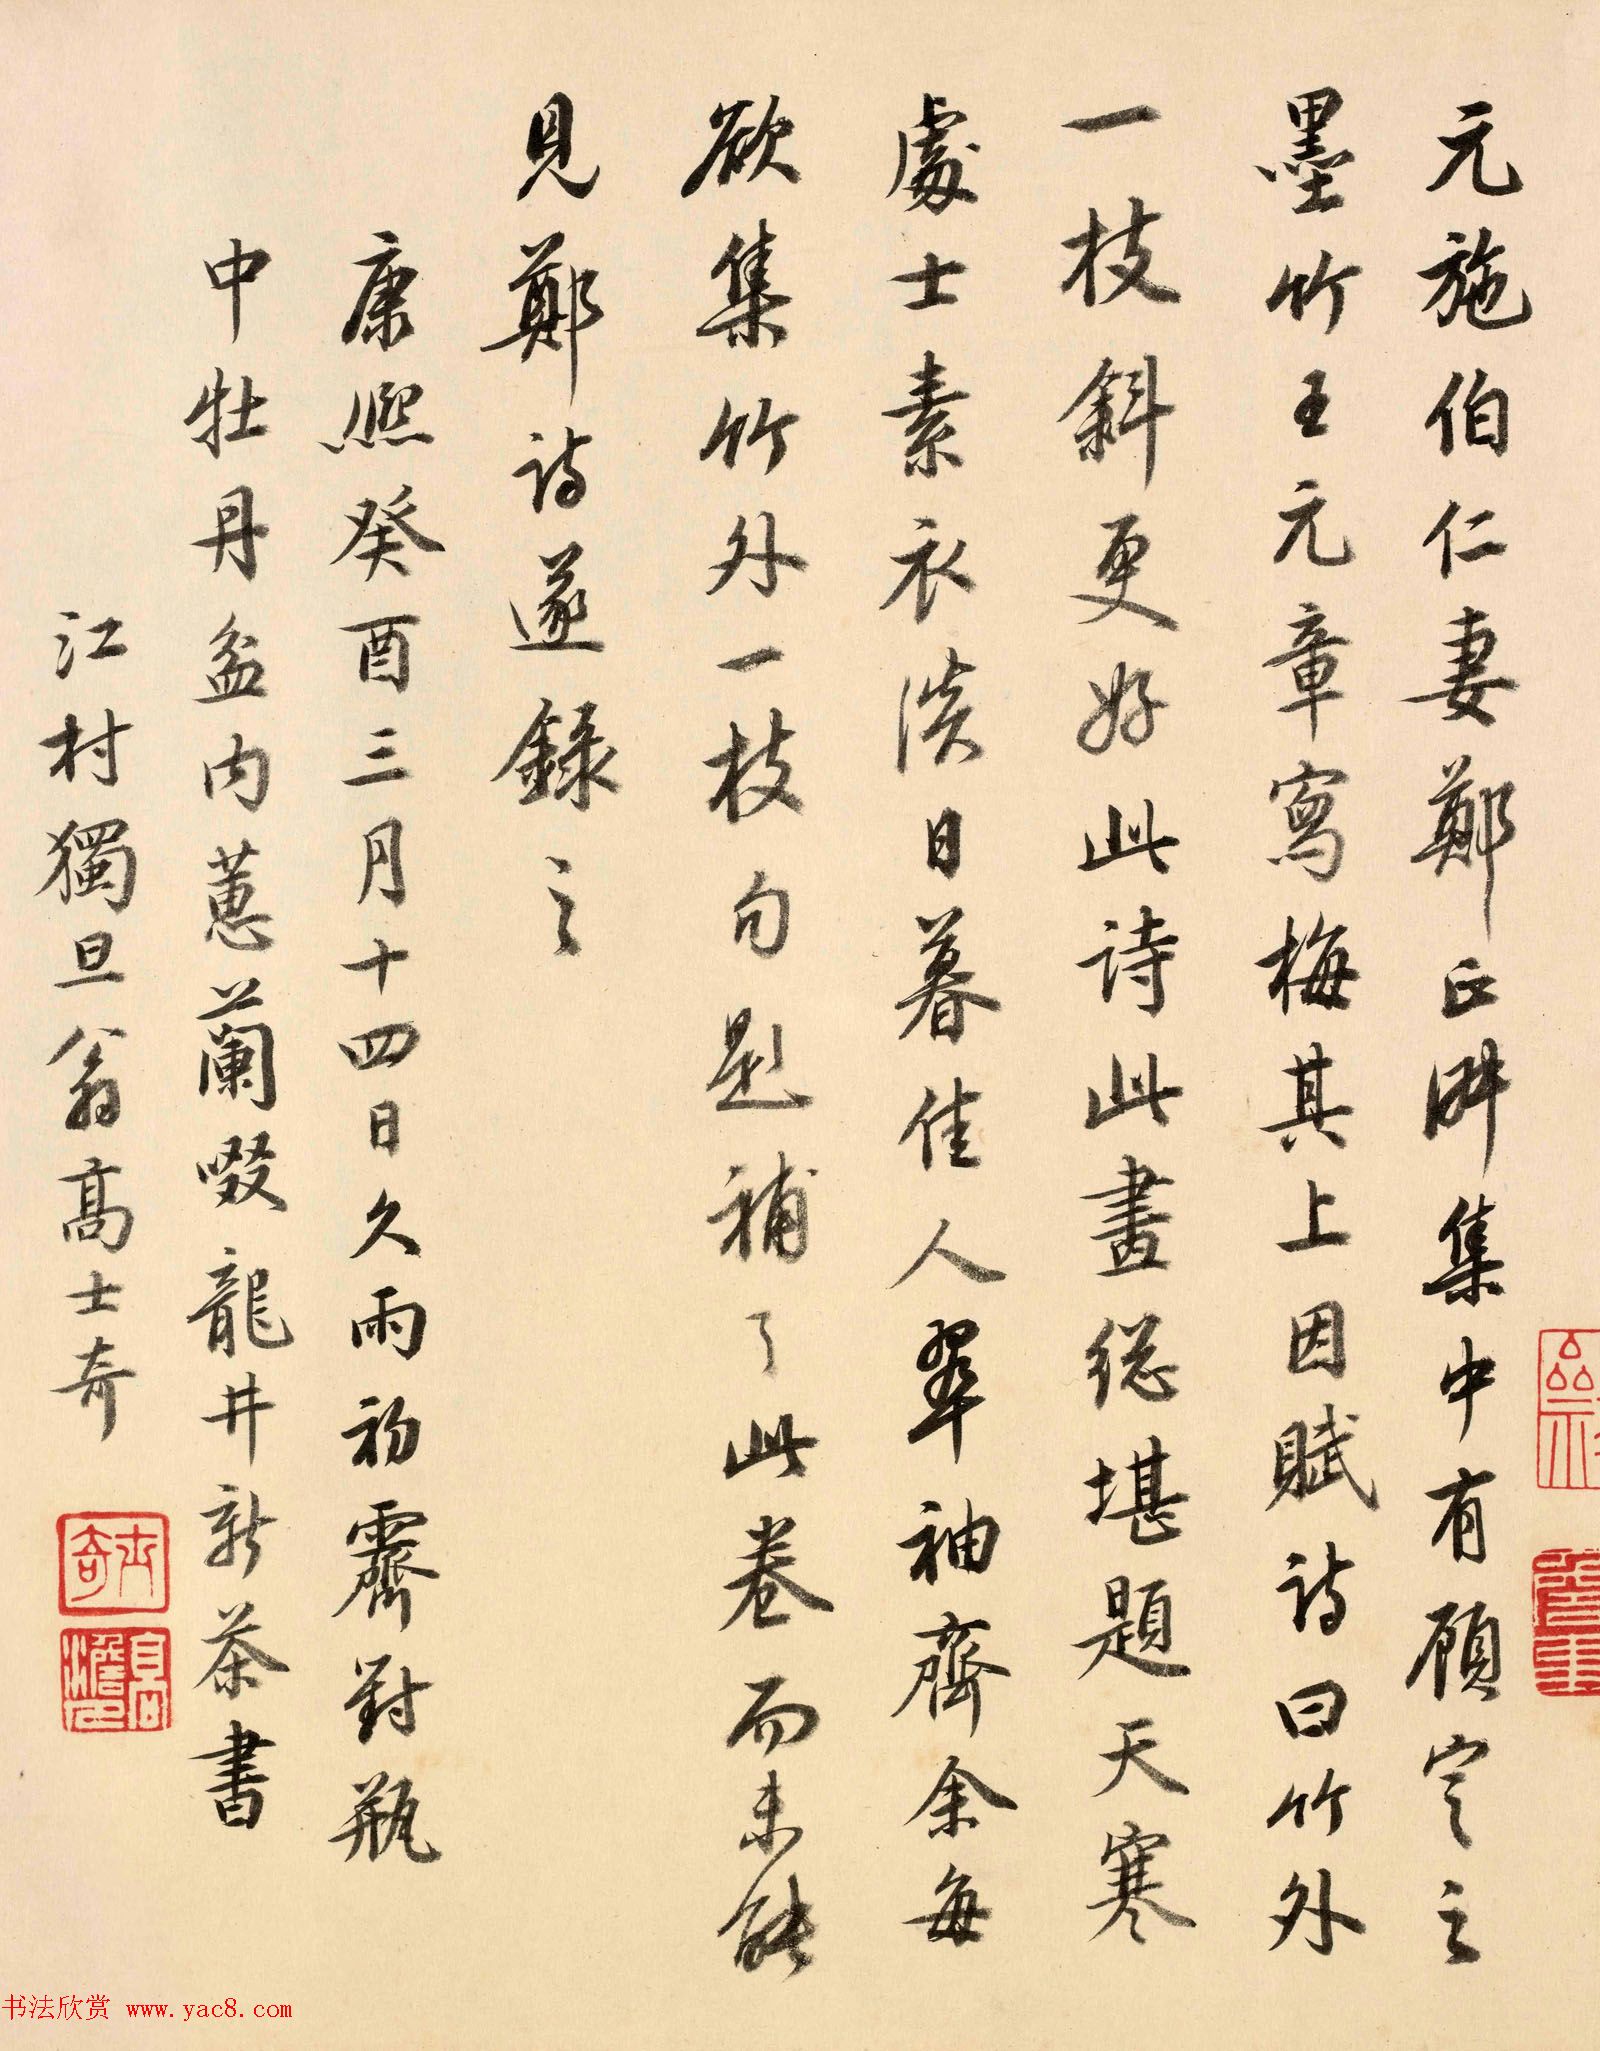 元施伯仁妻鄭正淑集中有顧定之
墨竹王元章寫梅其上因賦詩曰竹外
一枝斜更好此詩此畫総堪題天寒
處士素衣淡日暮佳人翠袖齊余每
欲集竹外一枝句題補了此卷而未能
見鄭詩遂錄之
康熙癸酉三月十四日久雨初霽對瓶
中牡丹盆内蕙蘭啜龍井新茶書
江村獨旦翁高士奇
士奇
书法欣赏 www.yac8.com